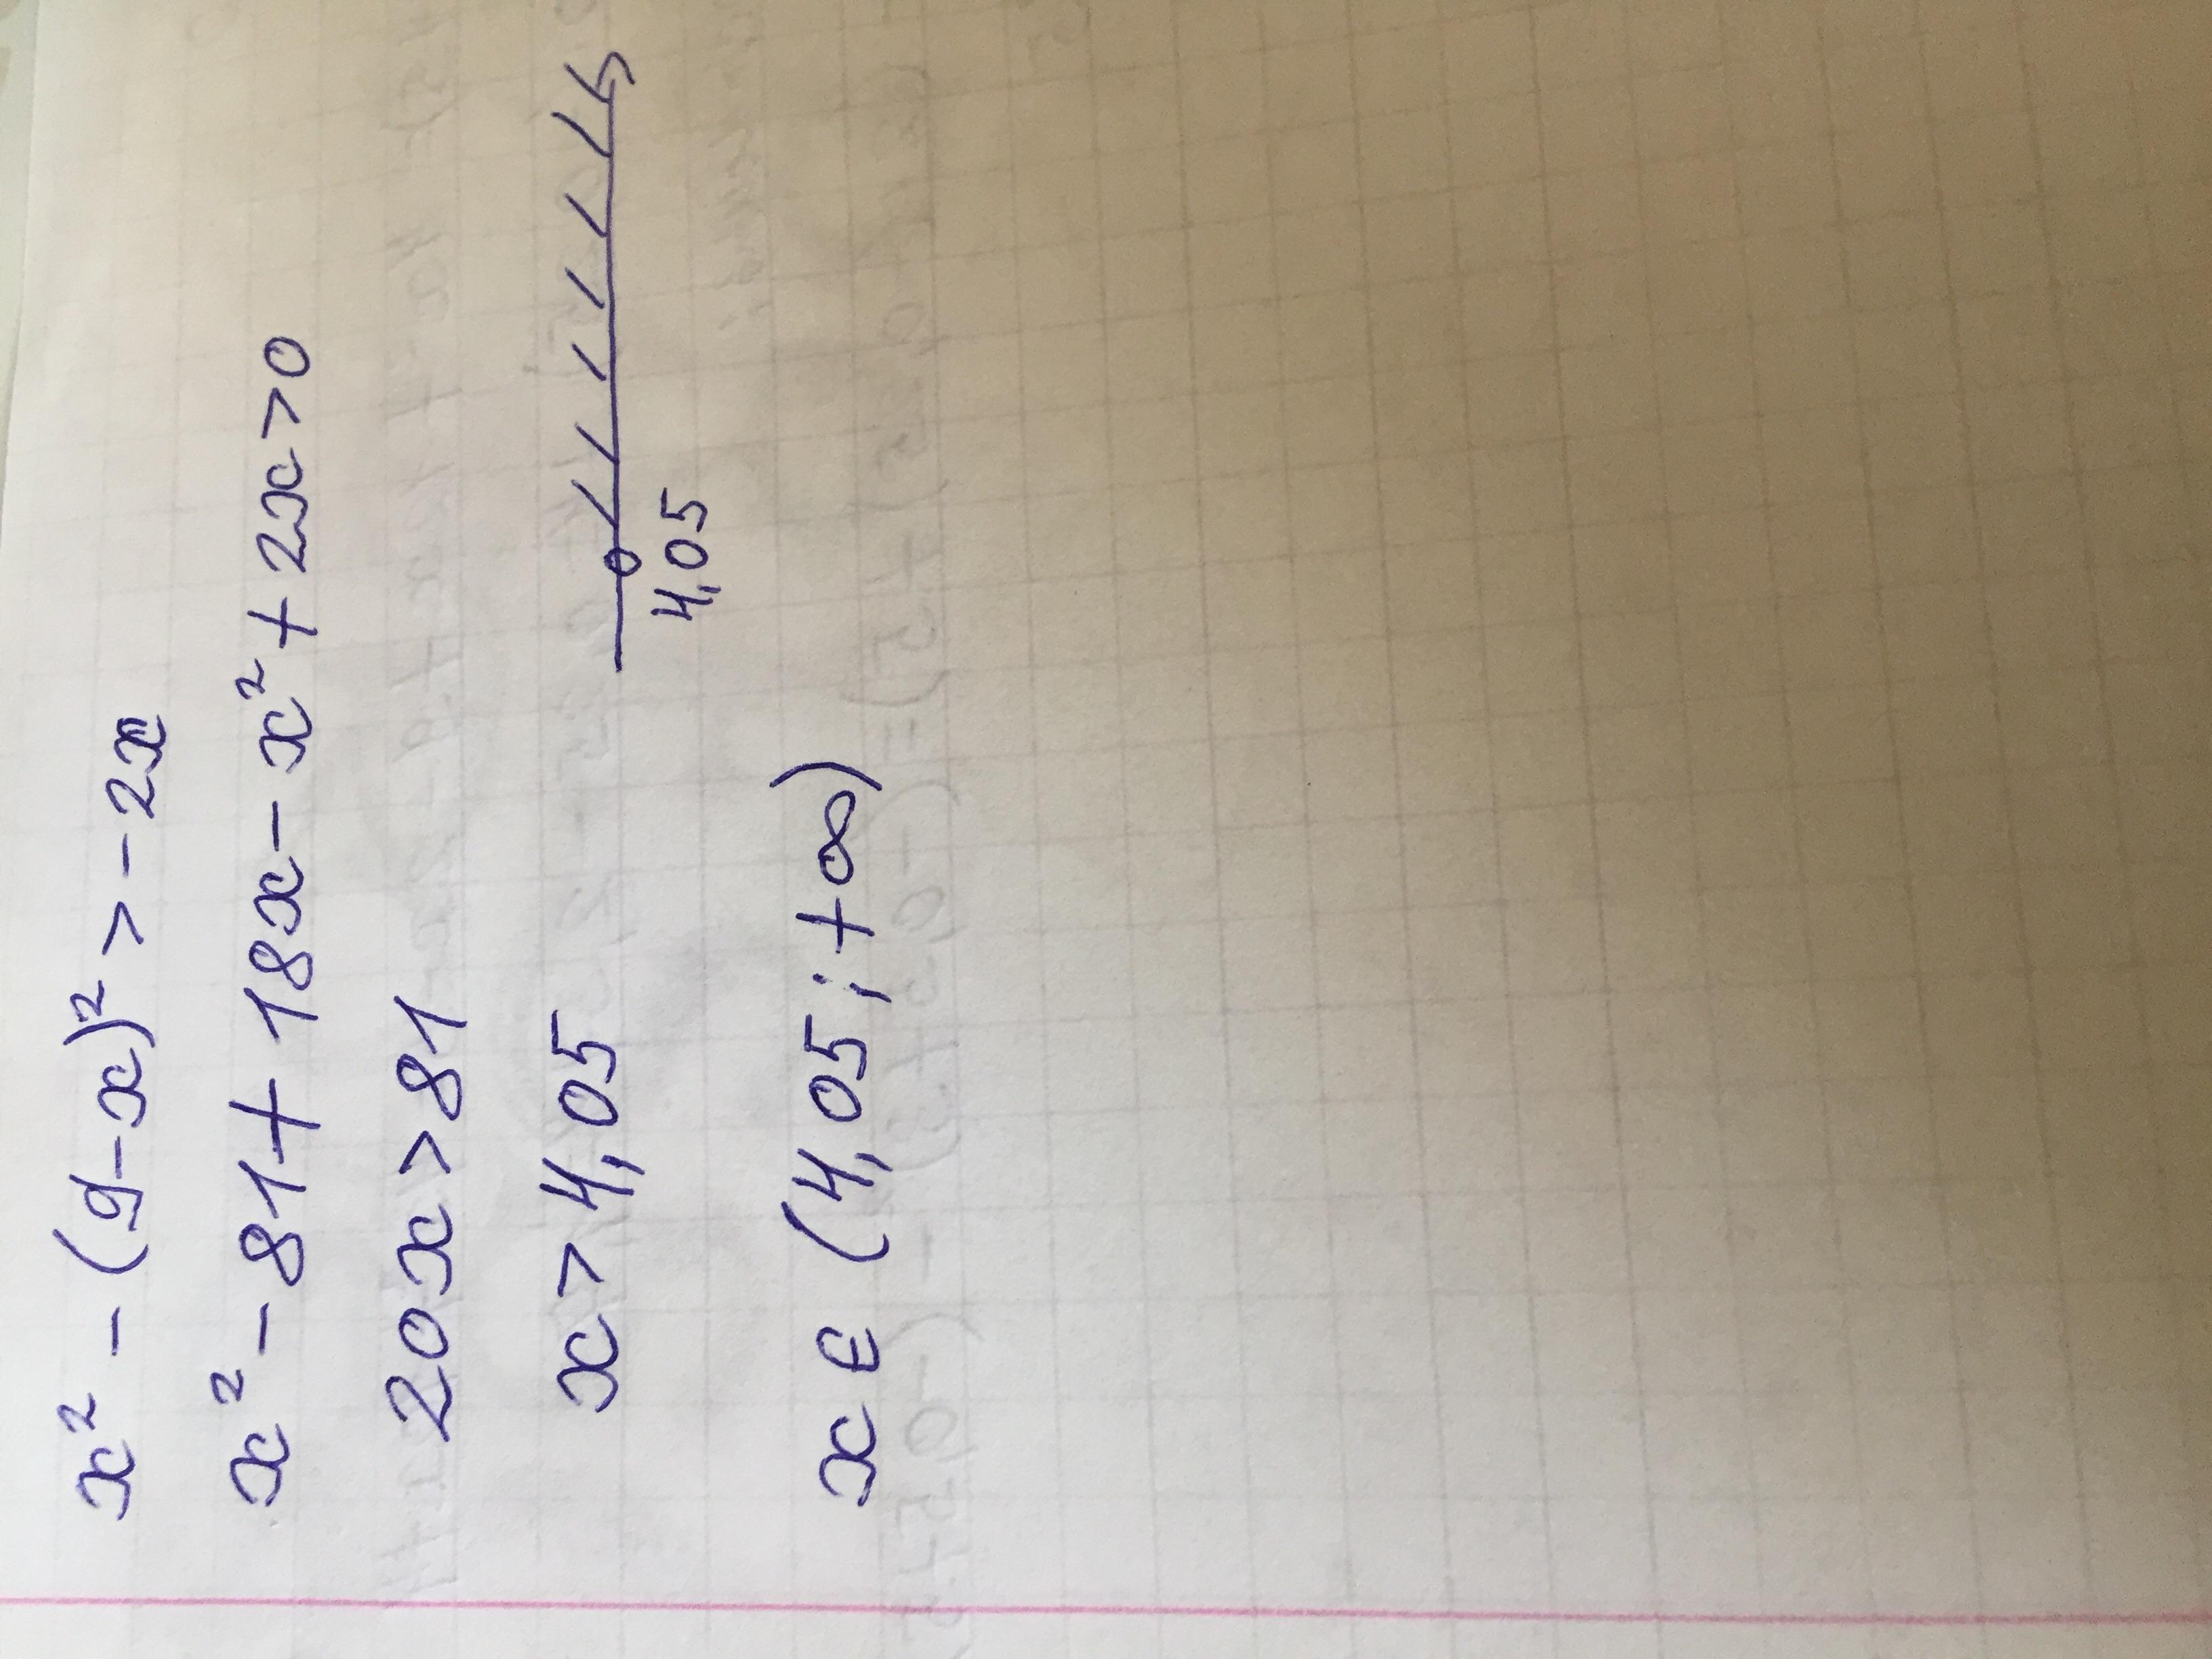 x² - (9-x)² > -2x
x² - 81 + 18x - x² + 2x > 0
20x > 81
x > 4,05
4,05
x ∈ (4,05; +∞)